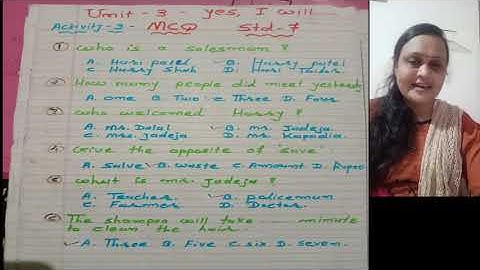 Unit - 3 - yes, I will
Activity - 3 - MCQ Std - 7
① who is a salesman ?
A. Hari patel B. Harry patel
C. Harry Shah D. Hari
② How many people did meet
A. one B. Two C. Three D. Four
③ who welcomed Harry ?
A. Mr. Dalal B. Mr. Jadeja
C. Mrs. Jadeja D. Mr. Kapadia.
Give the opposite of 'save'
A. Salve B. Waste C. Amount D.
what is mr. Jadeja ?
A. Teacher. B. policeman
C. Farmer D. Doctor.
⑥ The shampoo will take minute
to clean the hair.
A. Three B. Five C. six D. seven.